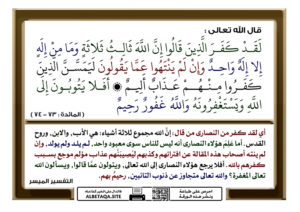 قال الله تعالى :
لَقَدْ كَفَرَ الَّذِينَ قَالُوا إِنَّ اللَّهَ ثَالِثُ ثَلَاثَةٍ وَمَا مِنْ إِلَهٍ
إِلَّا إِلَهٌ وَاحِدٌ وَإِنْ لَمْ يَنْتَهُوا عَمَّا يَقُولُونَ لَيَمَسَّنَّ الَّذِينَ
كَفَرُوا مِنْهُمْ عَذَابٌ أَلِيمٌ أَفَلَا يَتُوبُونَ إِلَى
اللَّهِ وَيَسْتَغْفِرُونَهُ وَاللَّهُ غَفُورٌ رَحِيمٌ
(المائدة : ٧٣ - ٧٤)
أي لقد كفر من النصارى من قال: إنَّ الله مجموع ثلاثة أشياء: هي الأب، والابن، وروح
القدس. أما عَلِمَ هؤلاء النصارى أنه ليس للناس سوى معبود واحد، لم يلد ولم يولد، وإن
لم ينته أصحاب هذه المقالة عن افترائهم وكذبهم ليُصيبَنَّهم عذاب مؤلم موجع بسبب
كفرهم بالله. أفلا يرجع هؤلاء النصارى إلى الله تعالى، ويتوبون عمَّا قالوا، ويسألون الله
تعالى المغفرة؟ والله تعالى متجاوز عن ذنوب التائبين، رحيمٌ بهم.
التفسير الميسر
ALBETAQA.SITE